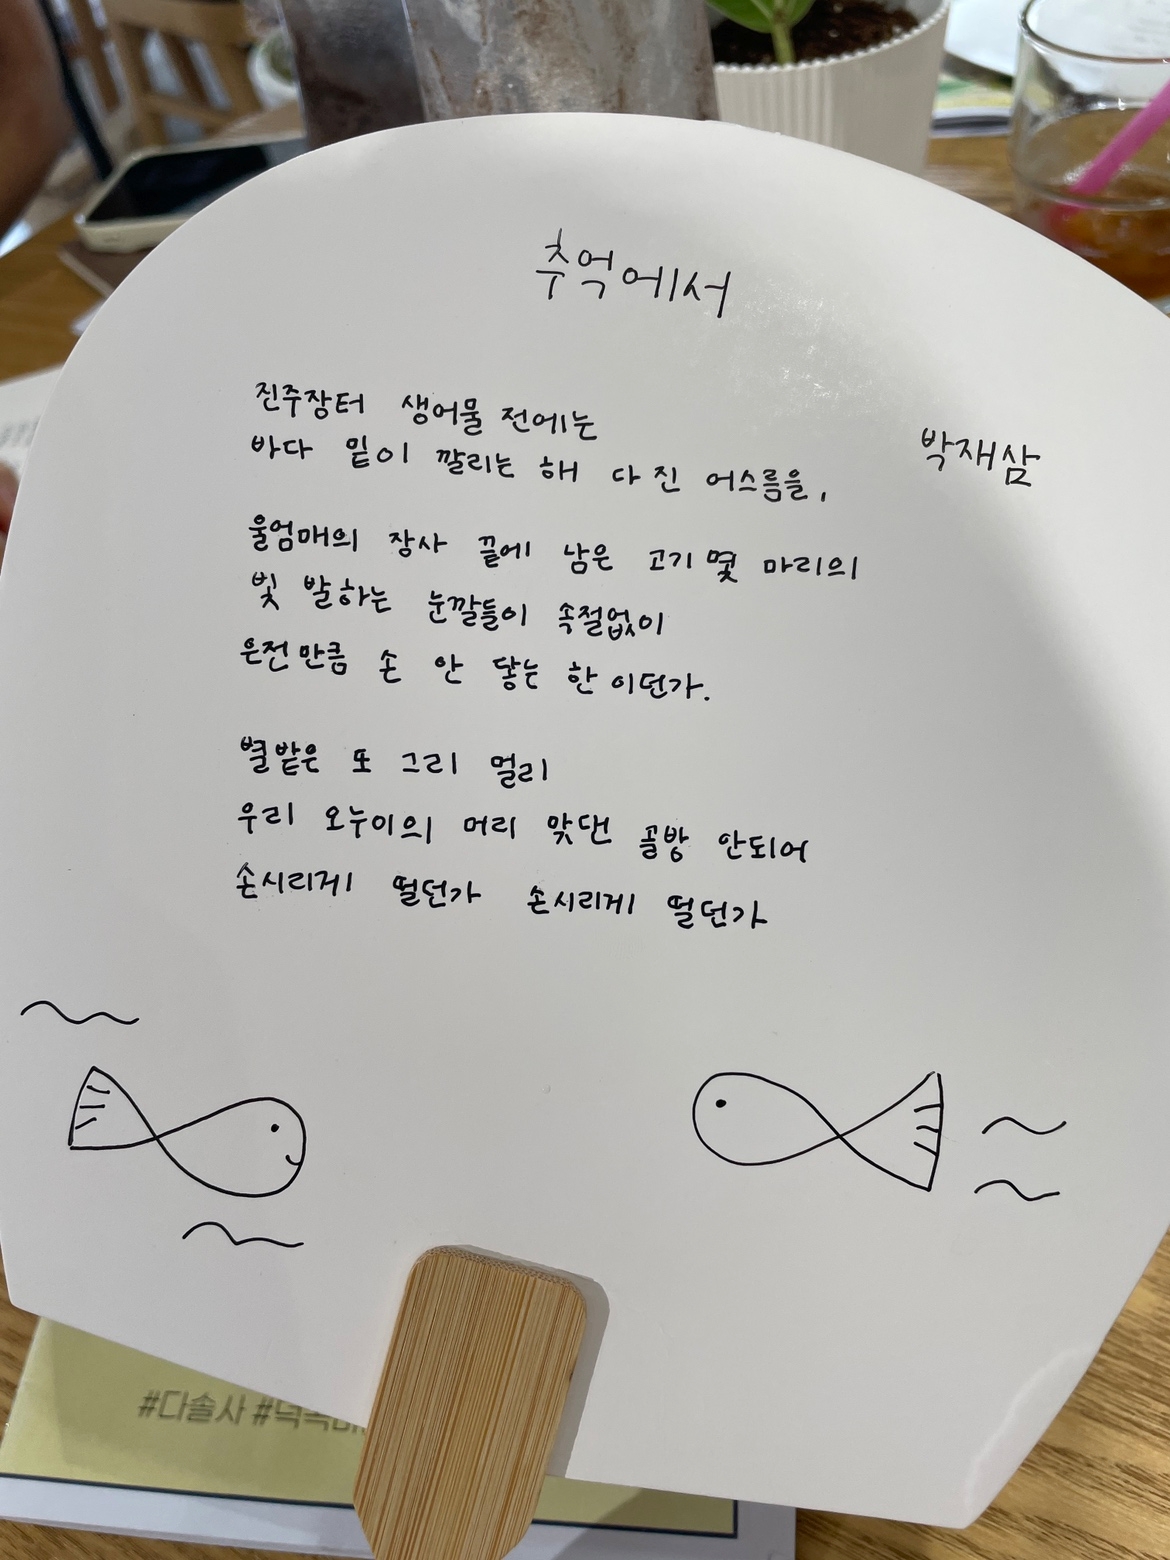 추억에서
박재삼
진주장터 생어물 전에는
바다 밑이 깔리는 해 다 진 어스름을,
울엄매의 장사 끝에 남은 고기 몇 마리의
빛 발하는 눈깔들이 속절없이
은전만큼 손 안 닿는 한이던가.
별밭은 또 그리 멀리
우리 오누이의 머리 맞댄 골방 안되어
손시리게 떨던가 손시리게 떨던가
#다솔사